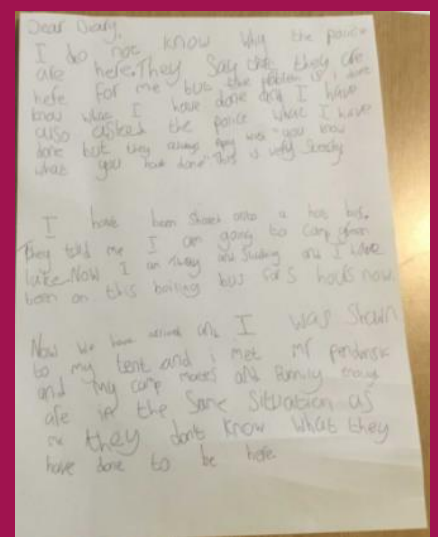 Dear Diary,
I do not know why the police
are here. They say that they are
here for me but the problem is i dont
know what I have done and I have
also asked the police what I have
done but they always say well "you know
what you have done" this is very
I have been shoved onto a hot bus.
They told me I am going to camp green
lake. Now I am and and I have
been on this boiling bus for 5 hours now.
Now we have arrived and I was shown
to my tent and i met mr pendanski
and my camp mates and funnily enough
are in the same situation as
me they dont know what they
have done to be here